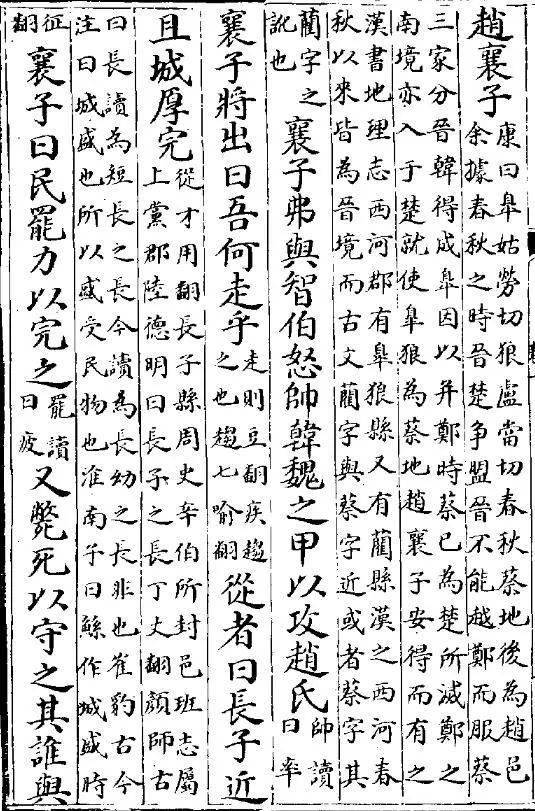 趙襄子康曰皐姑勞切狼盧當切春秋蔡地後為趙邑余據春秋之時晉楚争盟晉不能越鄭而服蔡
三家分晉韓得成皐因以并鄭時蔡已為楚所滅鄭之南境亦入于楚就使皐狼為蔡地趙襄子安得而有之
漢書地理志西河郡有皐狼縣又有藺縣漢之西河春秋以來皆為晉境而古文藺字與蔡字近或者蔡字其
藺字之訛也襄子弗與智伯怒帥韓魏之甲以攻趙氏帥讀曰率
襄子將出曰吾何走乎走則豆翻疾趨之也趨七喻翻從者曰長子近
且城厚完從才用翻長子縣周史辛伯所封邑班志屬上黨郡陸德明曰長子之長丁丈翻顏師古
曰長讀為短長之長今讀為長幼之長非也崔豹古今注曰城盛也所以盛受民物也淮南子曰鯀作城盛時
征翻襄子曰民罷力以完之罷讀曰疲又斃死以守之其誰與